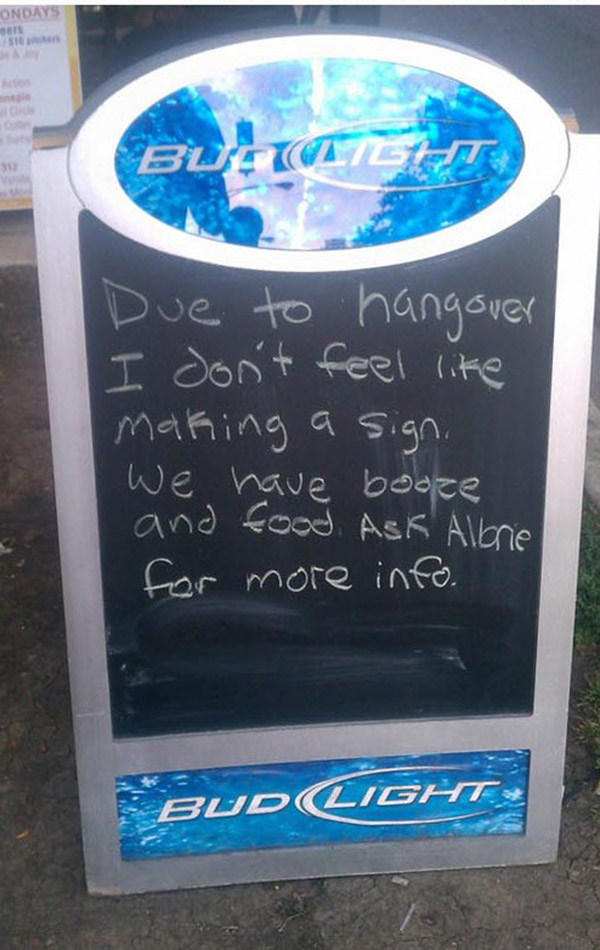 ONDAYS
BUD LIGHT
Due to hangover
I don't feel like
making a sign.
We have booze
and food. Ask Albrie
for more info.
BUD LIGHT